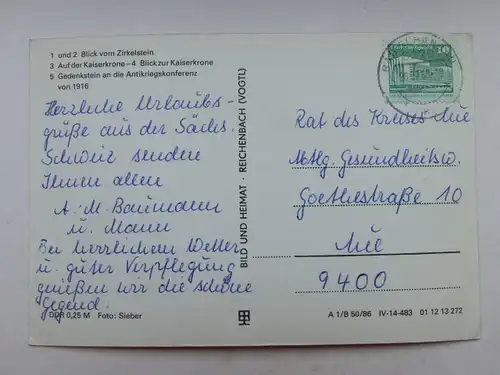 1 und 2 Blick vom Zirkelstein
3 Auf der Kaiserkrone – 4 Blick zur Kaiserkrone
5 Gedenkstein an die Antikriegskonferenz
von 1916
Herzliche Urlaubs-
grüße aus der Sächs.
Schweiz senden
Ihnen allen
A.-M. Baumann
u. Mann
Bei herrlichem Wetter
u. guter Verpflegung
genießen wir die schöne
Gegend.
DDR 0,25 M Foto: Sieber
BILD UND HEIMAT · REICHENBACH (VOGTL)
10
Rat des Kreises Aue
Abtlg. Gesundheitsw.
Goethestraße 10
Aue
9400
A 1/B 50/86 IV-14-483 01 12 13 272